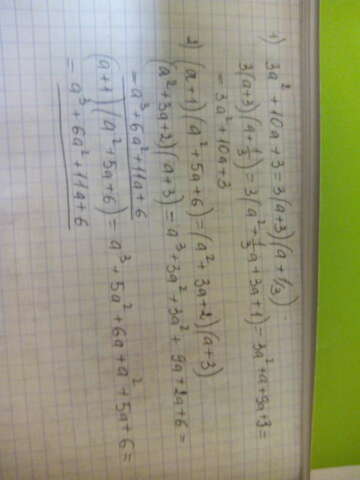 1) 3a² + 10a + 3 = 3(a+3)(a + 1/3)
3(a+3)(a + 1/3) = 3(a² + 1/3 a + 3a + 1) = 3a² + a + 9a + 3 =
= 3a² + 10a + 3
2) (a+1)(a² + 5a + 6) = (a² + 3a + 2)(a+3)
(a² + 3a + 2)(a+3) = a³ + 3a² + 3a² + 9a + 2a + 6 =
= a³ + 6a² + 11a + 6
(a+1)(a² + 5a + 6) = a³ + 5a² + 6a + a² + 5a + 6 =
= a³ + 6a² + 11a + 6